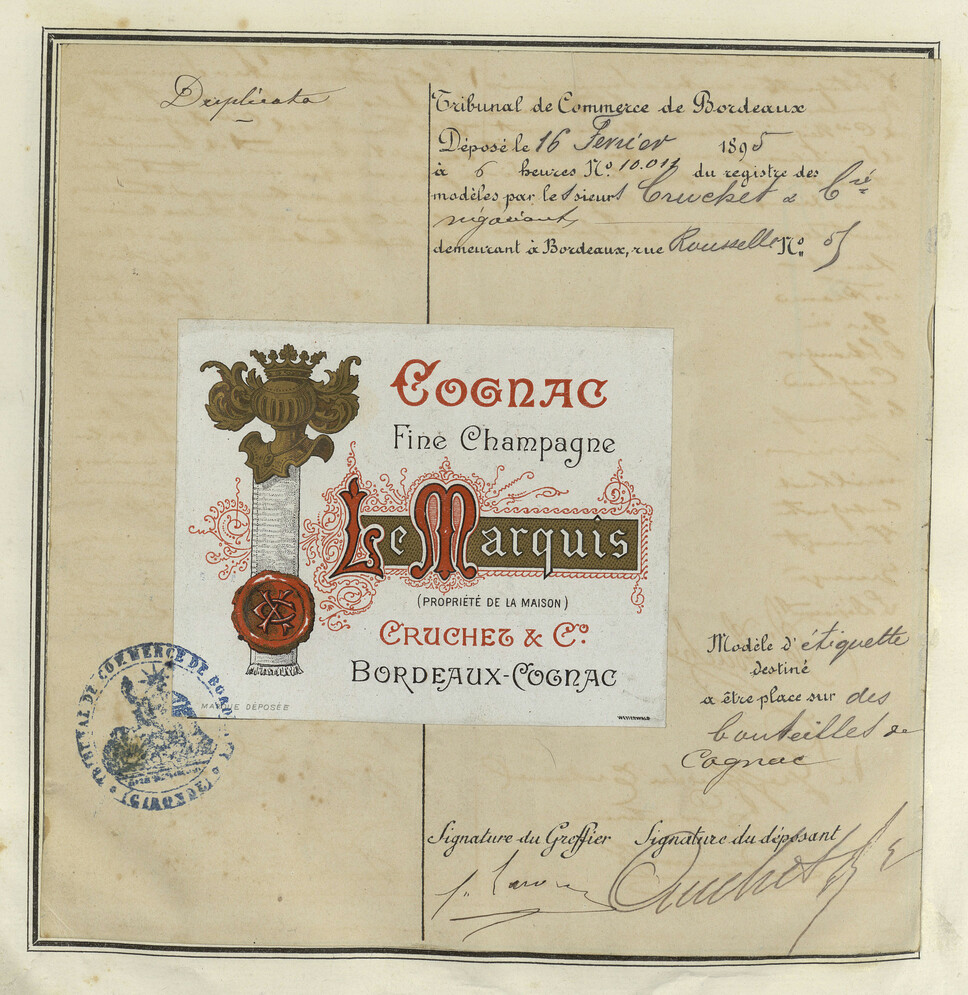 Duplicata
Tribunal de Commerce de Bordeaux
Déposé le 16 Fevrier 1895
à 6 heures No. 10.011 du registre des
modèles par les sieurs Cruchet & Cie
négociants
demeurant à Bordeaux, rue Rousselle No. 51
COGNAC
Fine Champagne
Le Marquis
(PROPRIÉTÉ DE LA MAISON)
CRUCHET & Co.
BORDEAUX-COGNAC
MARQUE DÉPOSÉE
WETTERWALD
TRIBUNAL DE COMMERCE DE BORDEAUX
(GIRONDE)
Modèle d'étiquette
destiné
a être place sur des
bouteilles de
Cognac
Signature du Greffier Signature du déposant
Cruchet & Cie